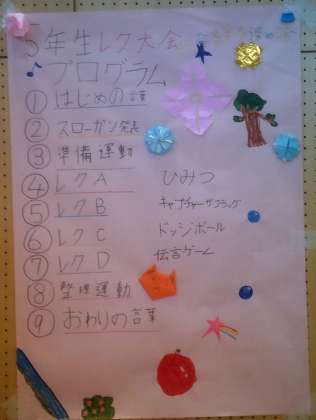 5年生レク大会
プログラム
① はじめの言葉
② スローガン発表
③ 準備運動
④ レクA ひみつ
⑤ レクB キャプチャーザフラッグ
⑥ レクC ドッジボール
⑦ レクD 伝言ゲーム
⑧ 整理運動
⑨ おわりの言葉